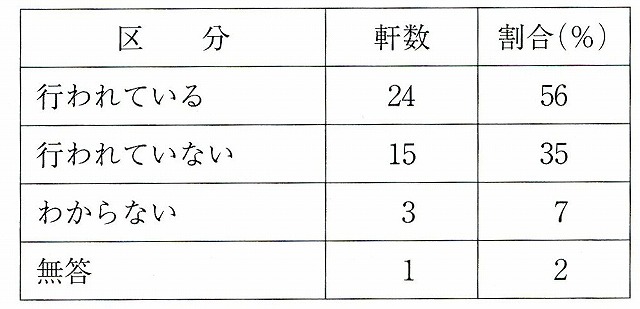 区 分 軒数 割合(%)
行われている 24 56
行われていない 15 35
わからない 3 7
無答 1 2